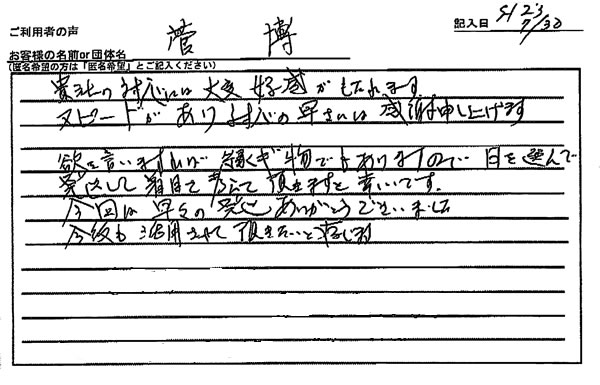 ご利用者の声
お客様の名前or団体名 菅 博
(匿名希望の方は「匿名希望」とご記入ください)
記入日 H23 7/30
貴社の対応には大変好感がもたれます
スピードがあり対応の早さには感謝申し上げます
欲を言いますれば 縁ぎ物でよありますので 日を選んで
発送して着目で考えて頂きますと幸いです。
今回は早々の発送ありがとうございました
今後も活用させて頂きたいと存じます